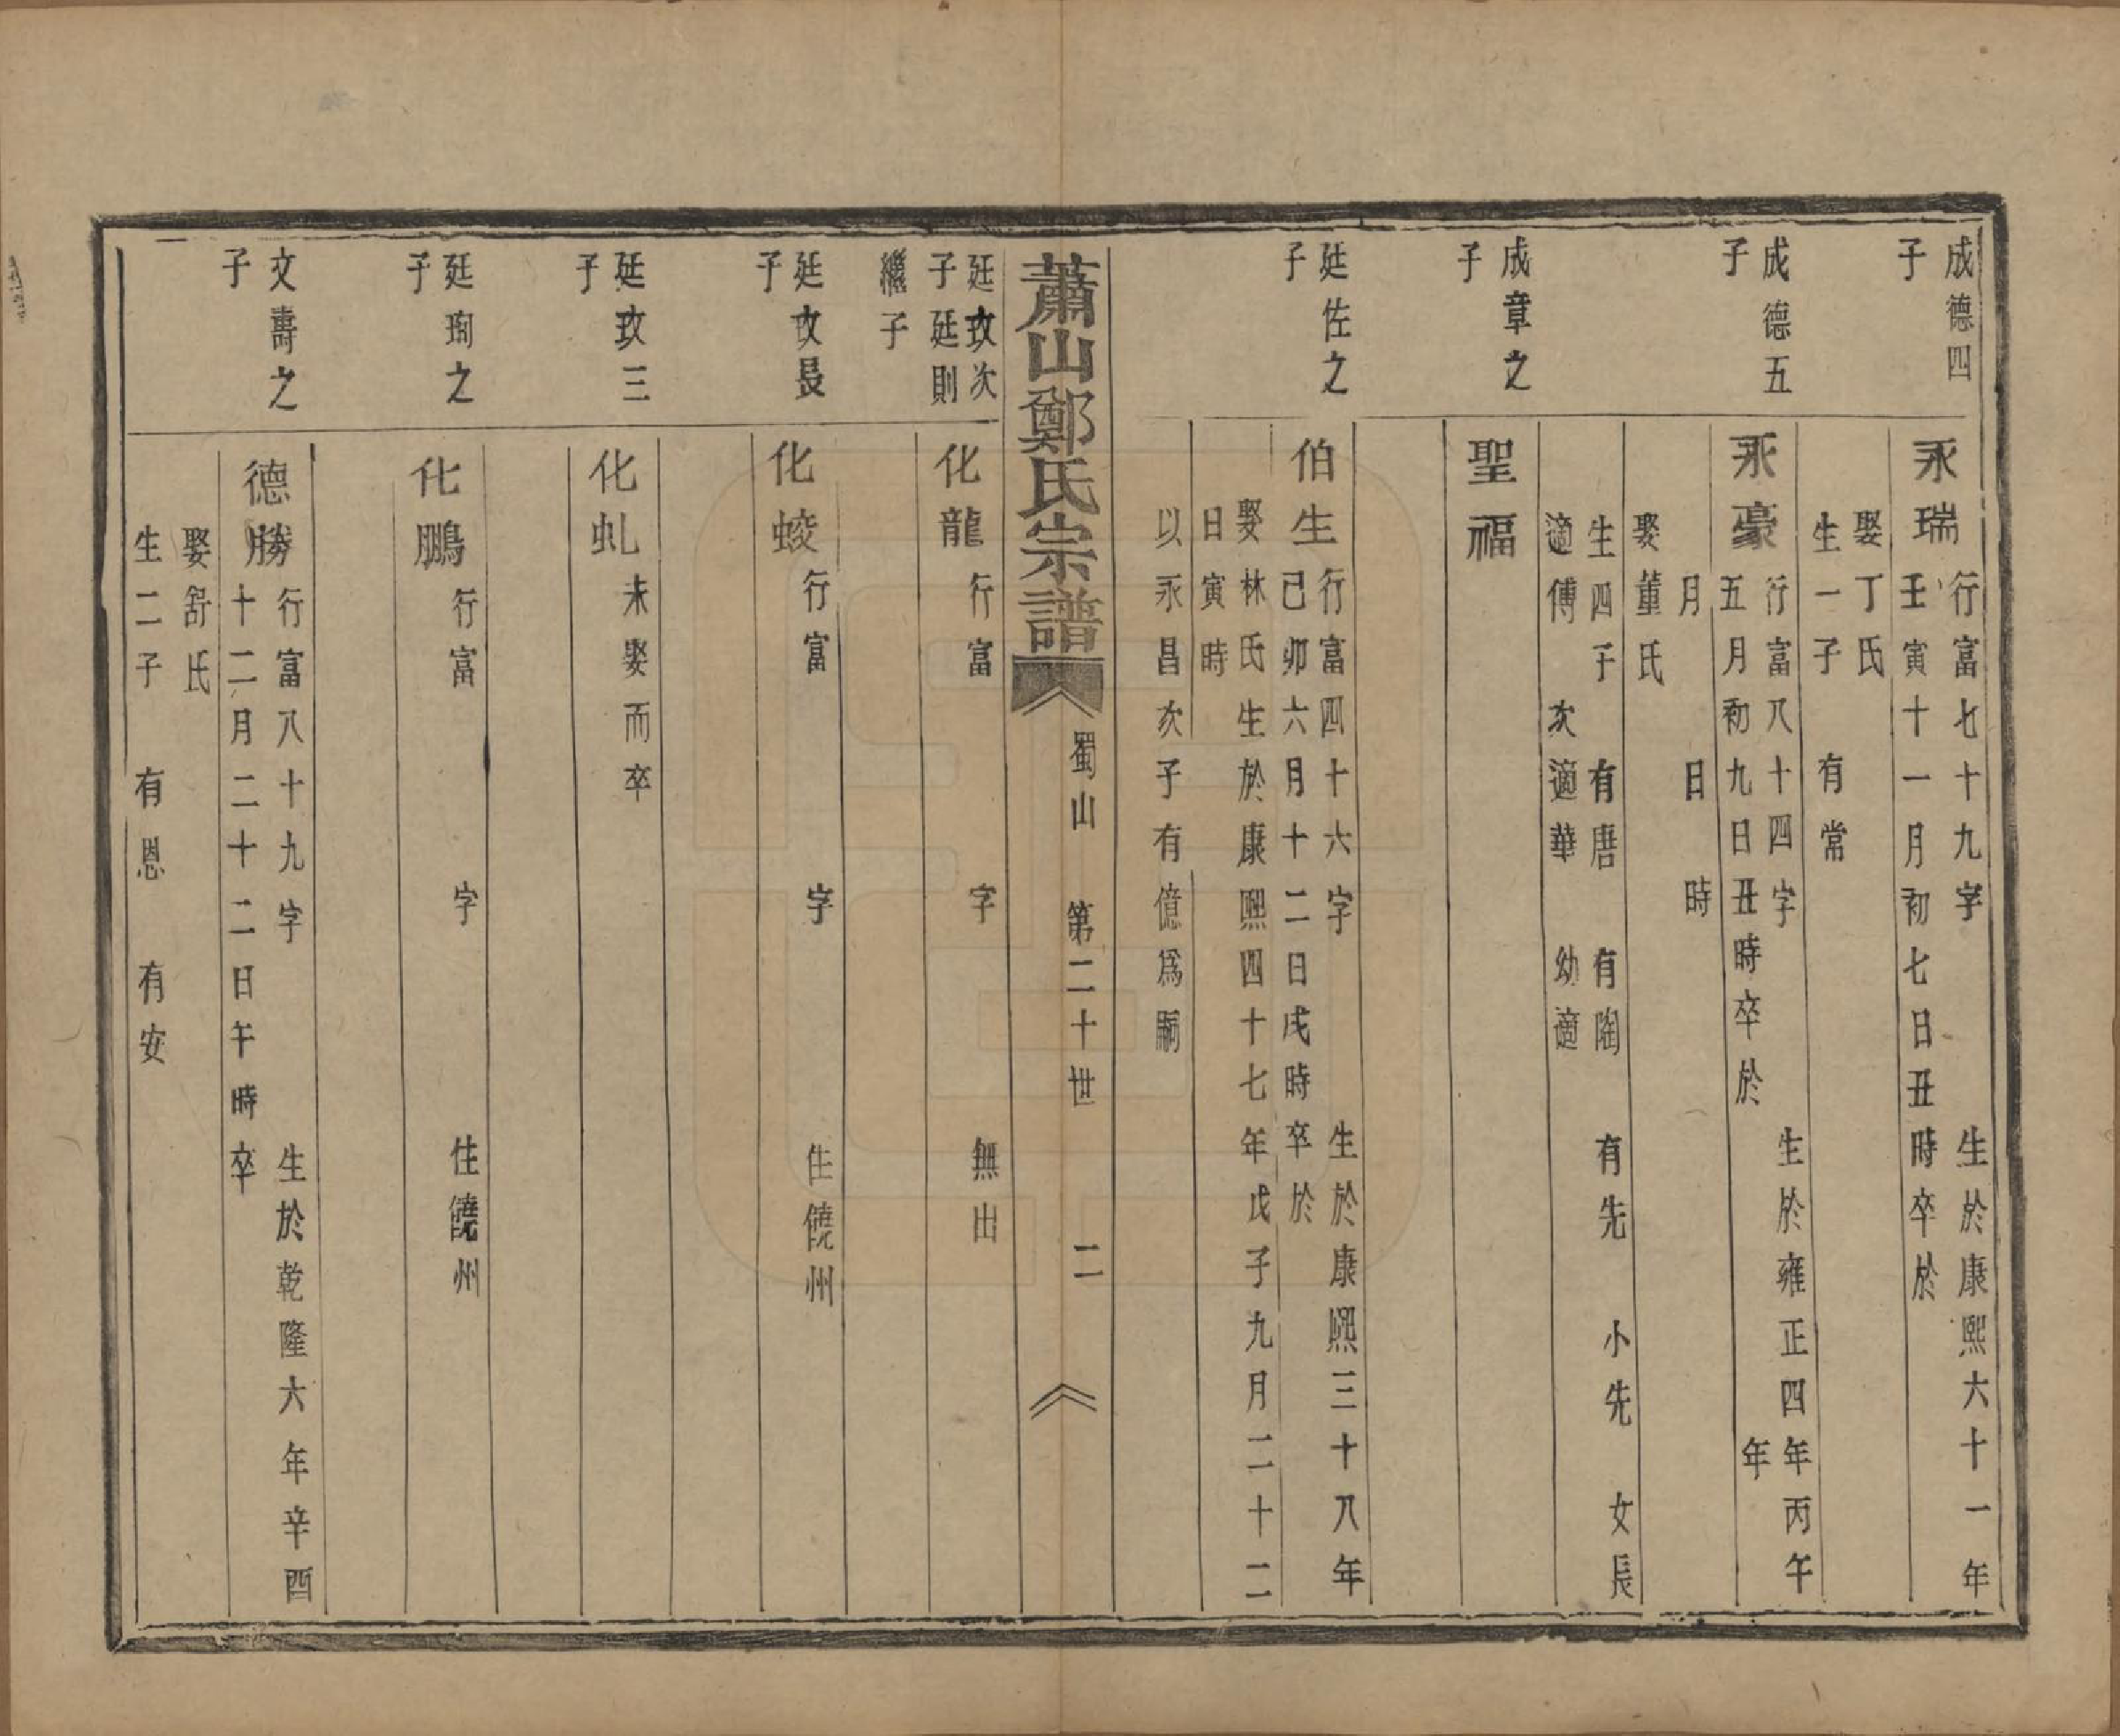 成德四
子
永瑞
行富七十九字　生於康熙六十一年
壬寅十一月初七日丑時卒於
娶丁氏
生一子　有常
成德五
子
永豪
行富八十四字　生於雍正四年丙午
五月初九日丑時卒於　年
月　日　時
娶董氏
生四子　有唐　有陶　有先　小先　女長
適傅　次適華　幼適
成章之
子
聖福
廷佐之
子
伯生
行富四十六字　生於康熙三十八年
己卯六月十二日戌時卒於
娶林氏生於康熙四十七年戊子九月二十二
日寅時
以永昌次子有億爲嗣
蕭山鄭氏宗譜
蜀山　第二十世　二
廷玫次
子廷則
繼子
化龍
行富　字　無出
廷玫長
子
化蛟
行富　字　住饒州
廷玫三
子
化虬
未娶而卒
廷珣之
子
化鵬
行富　字　住饒州
文壽之
子
德勝
行富八十九字　生於乾隆六年辛酉
十二月二十二日午時卒
娶舒氏
生二子　有恩　有安